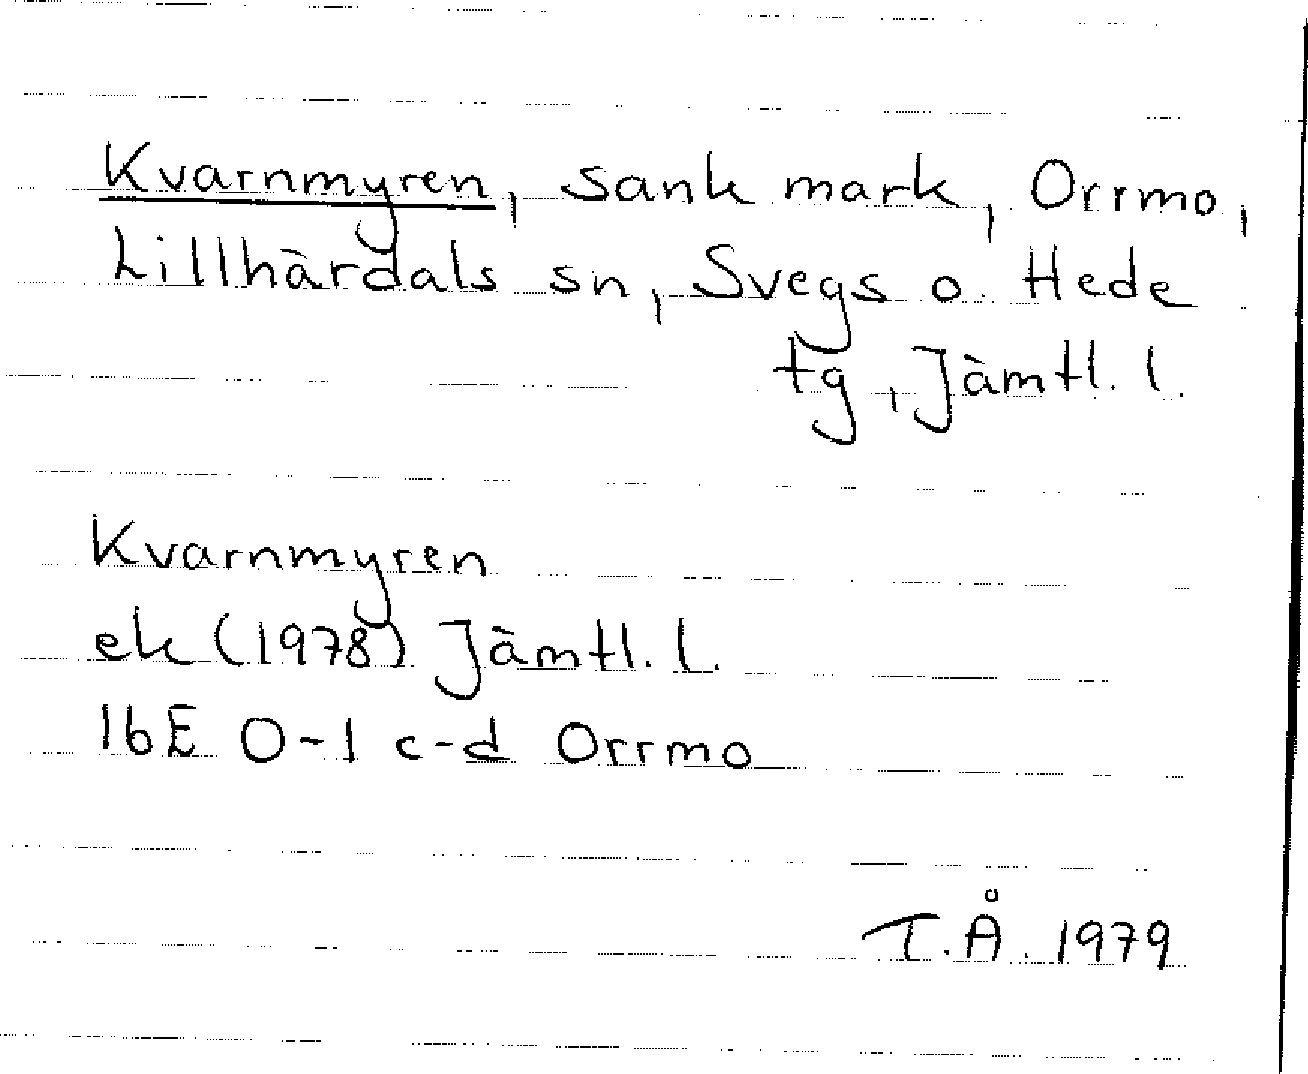 Kvarnmyren, sank mark, Orrmo,
Lillhärdals sn, Svegs o. Hede
tg, Jämtl. l.
Kvarnmyren
ek (1978) Jämtl. l.
16E 0-1 c-d Orrmo
T.Å. 1979